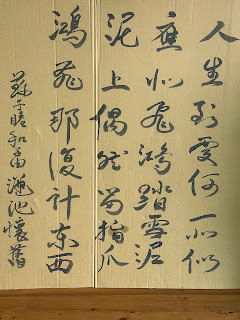 人生到處何所似
應似飛鴻踏雪泥
泥上偶然留指爪
鴻飛那復計东西
蘇子瞻和由澠池懷舊